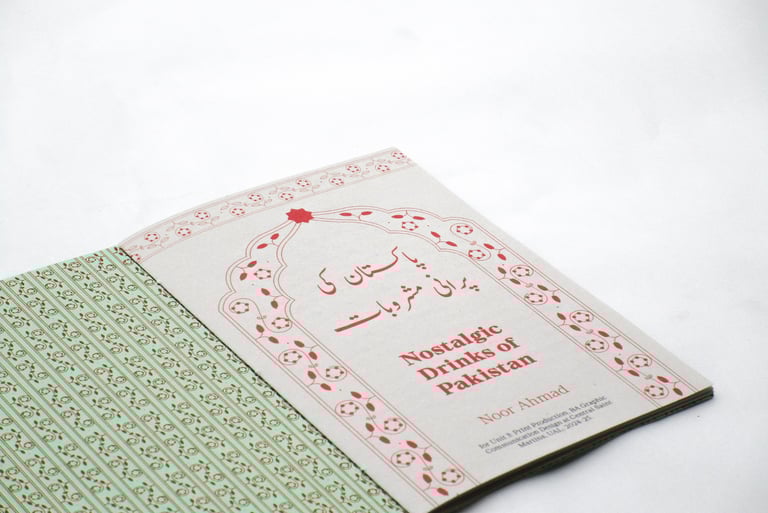 پاکستان کی
پرانی مشروبات
Nostalgic
Drinks of
Pakistan
Noor Ahmad
for Unit 8 Print Production, BA Graphic
Communication Design at Central Saint
Martins, UAL, 2024-25